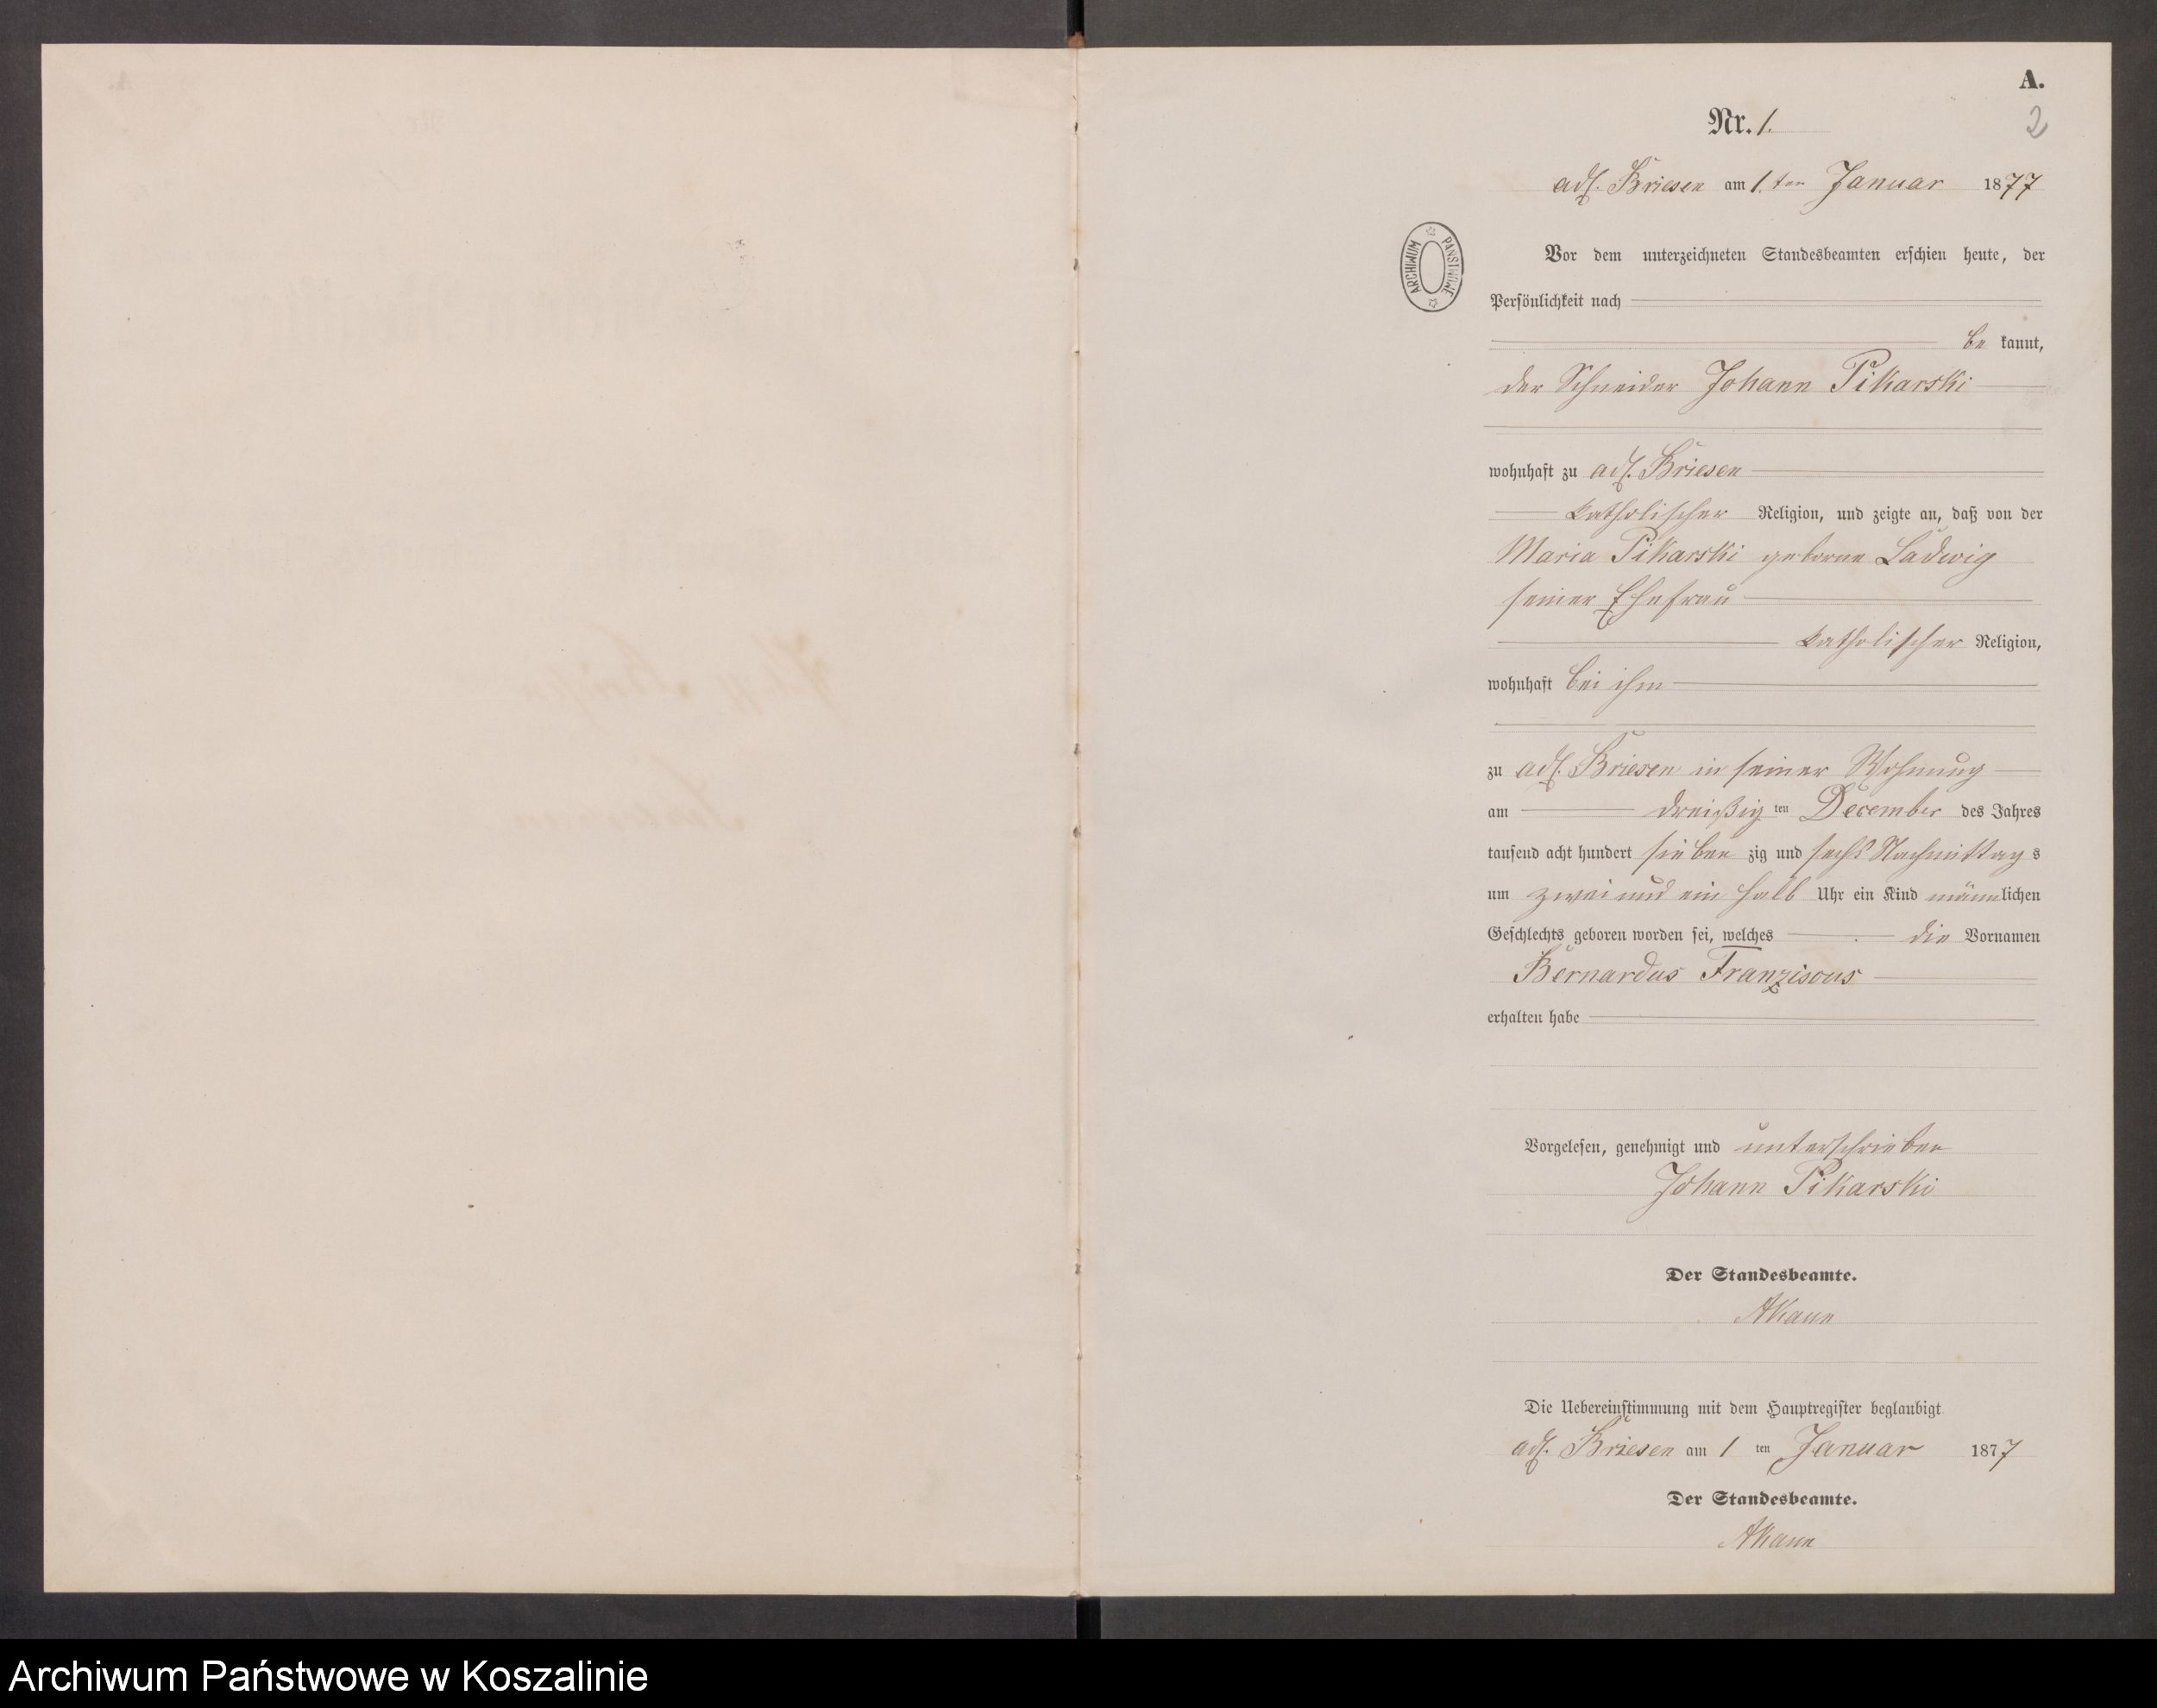 A.
2
Nr. 1.
adl. Briesen am 1. ten Januar 1877
Vor dem unterzeichneten Standesbeamten erschien heute, der
Persönlichkeit nach
be kannt,
der Schneider Johann Pikarski
wohnhaft zu adl. Briesen
katholischer Religion, und zeigte an, daß von der
Maria Pikarski geborne Ladwig
seiner Ehefrau
katholischer Religion,
wohnhaft bei ihm
zu adl. Briesen in seiner Wohnung
am dreißig ten December des Jahres
tausend acht hundert sieben zig und sechs Nachmittag s
um zwei und ein halb Uhr ein Kind männlichen
Geschlechts geboren worden sei, welches die Vornamen
Bernardus Franziscus
erhalten habe
Vorgelesen, genehmigt und unterschrieben
Johann Pikarski
Der Standesbeamte.
Die Uebereinstimmung mit dem Hauptregister beglaubigt
adl. Briesen am 1 ten Januar 1877
Der Standesbeamte.
ARCHIWUM PAŃSTWOWE
Archiwum Państwowe w Koszalinie